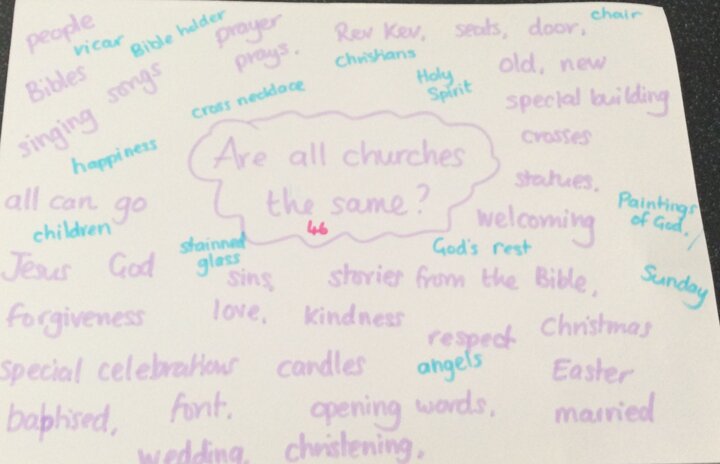 people
vicar
Bible holder
prayer
prays.
Rev Kev,
seats,
door,
chair
Bibles
songs
Christians
Holy
Spirit
old, new
singing
cross necklace
special building
happiness
Are all churches
the same?
46
crosses
statues,
all can go
children
welcoming
Paintings
of God.
Jesus
God
stained
glass
God's rest
sins,
stories from the Bible,
Sunday
forgiveness
love,
kindness
respect
Christmas
special celebrations
candles
angels
Easter
baptised,
font.
opening words,
married
wedding,
christening,